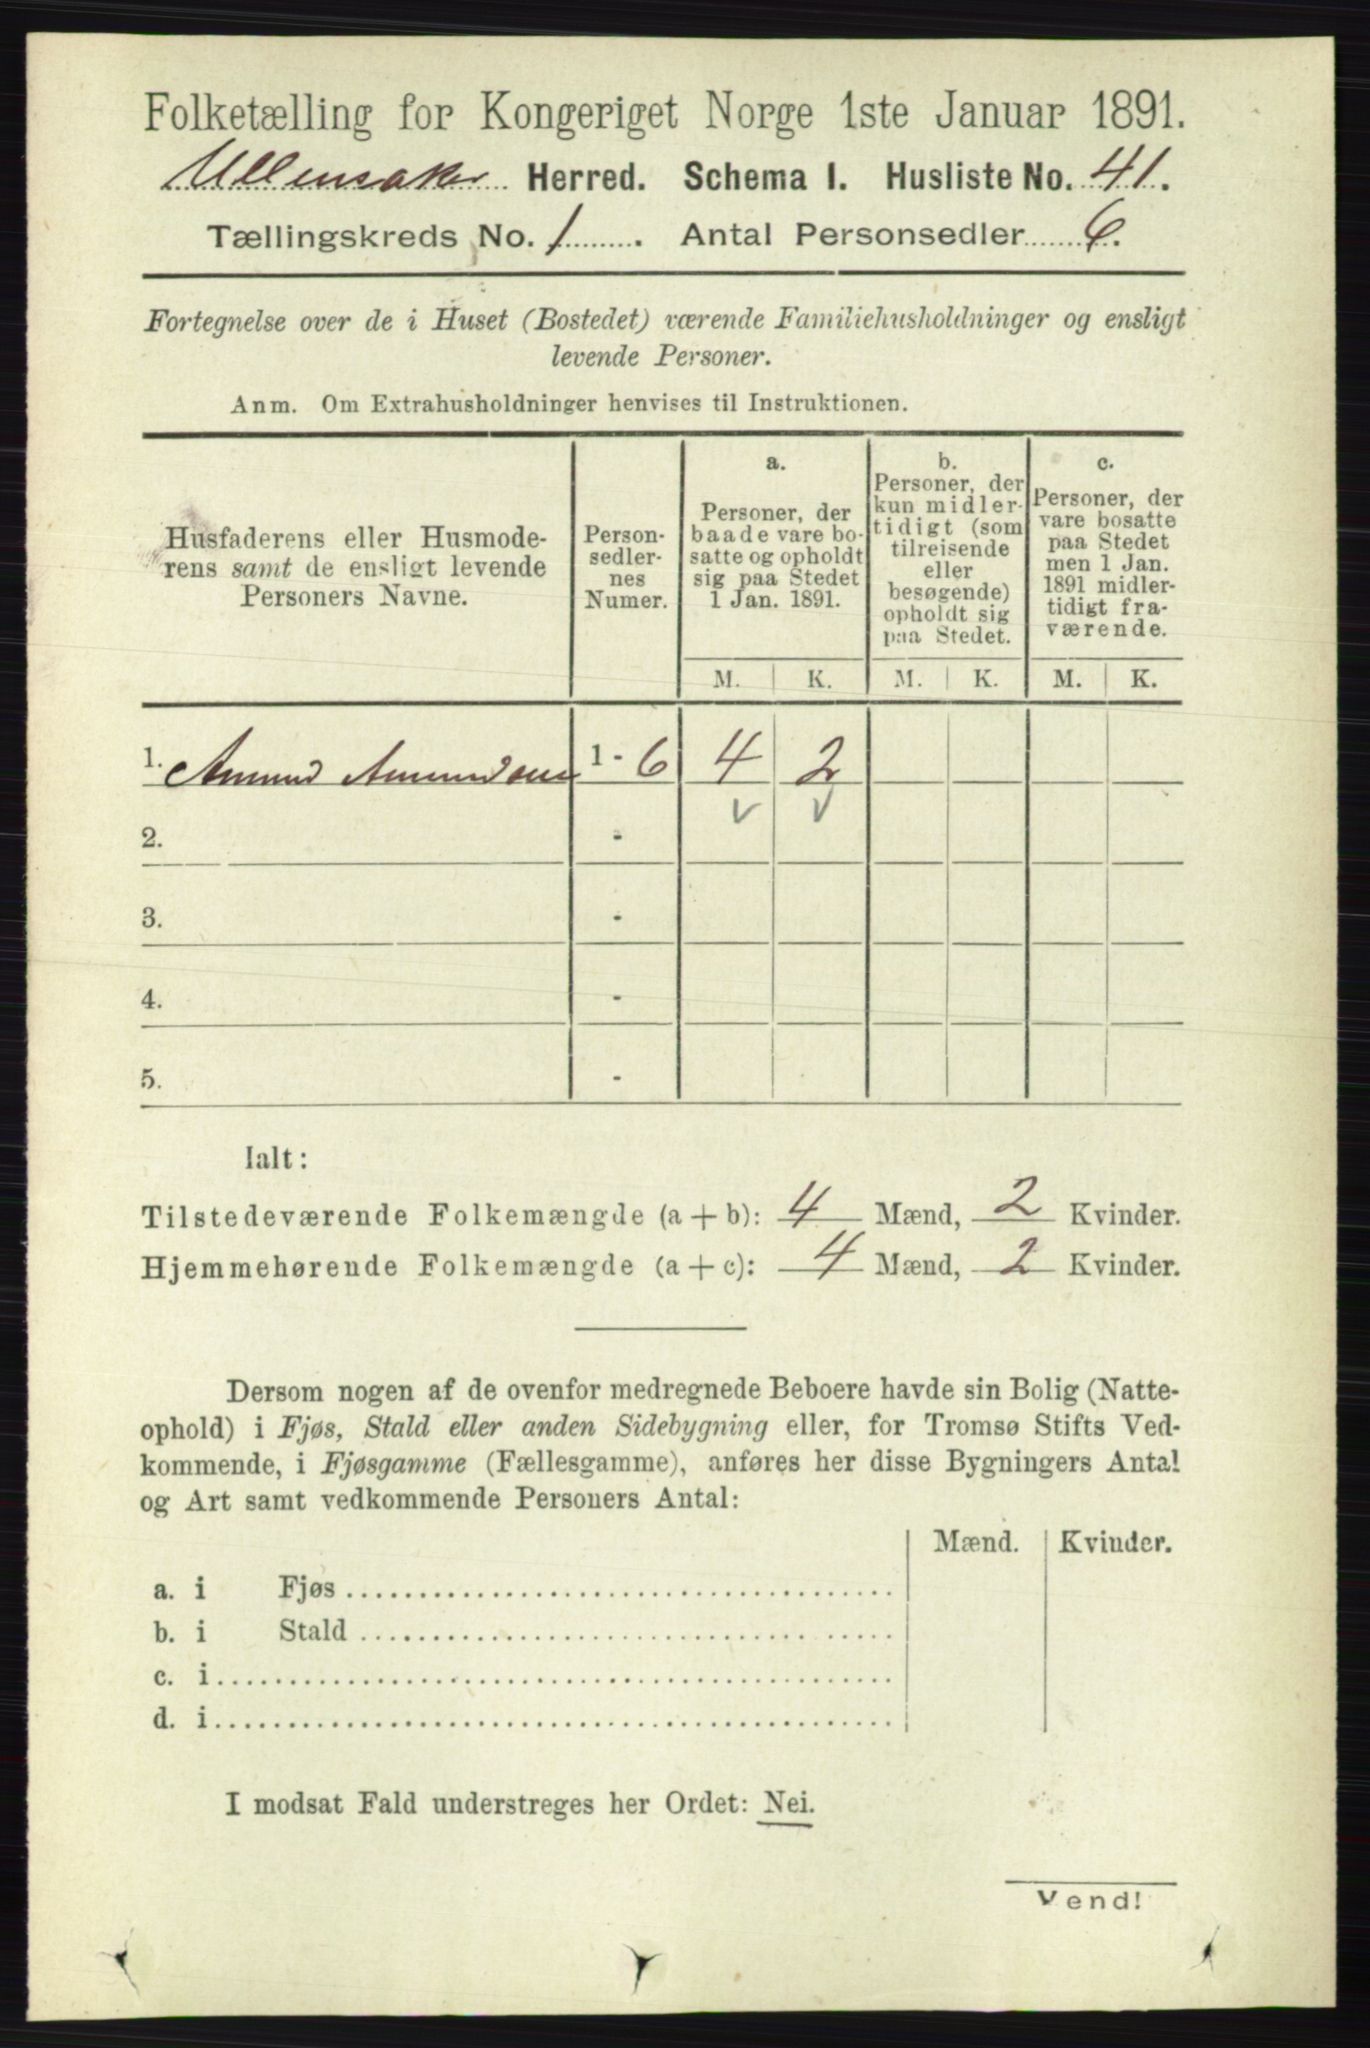 Folketælling for Kongeriget Norge 1ste Januar 1891.
Ullensaker Herred. Schema I. Husliste No. 41.
Tællingskreds No. 1. Antal Personsedler 6.
Fortegnelse over de i Huset (Bostedet) værende Familiehusholdninger og ensligt
levende Personer.
Anm. Om Extrahusholdninger henvises til Instruktionen.
Husfaderens eller Husmode-
rens samt de ensligt levende
Personers Navne.
Person-
sedler-
nes
Numer.
a.
Personer, der
baade vare bo-
satte og opholdt
sig paa Stedet
1 Jan. 1891.
b.
Personer, der
kun midler-
tidigt (som
tilreisende
eller
besøgende)
opholdt sig
paa Stedet.
c.
Personer, der
vare bosatte
paa Stedet
men 1 Jan.
1891 midler-
tidigt fra-
værende.
M. K. M. K. M. K.
1. Amund Amundsen 1 - 6 4 2
2. -
3. -
4. -
5. -
Ialt:
Tilstedeværende Folkemængde (a + b): 4 Mænd, 2 Kvinder.
Hjemmehørende Folkemængde (a + c): 4 Mænd, 2 Kvinder.
Dersom nogen af de ovenfor medregnede Beboere havde sin Bolig (Natte-
ophold) i Fjøs, Stald eller anden Sidebygning eller, for Tromsø Stifts Ved-
kommende, i Fjøsgamme (Fællesgamme), anføres her disse Bygningers Antal
og Art samt vedkommende Personers Antal:
Mænd. Kvinder.
a. i Fjøs
b. i Stald
c. i
d. i
I modsat Fald understreges her Ordet: Nei.
Vend!